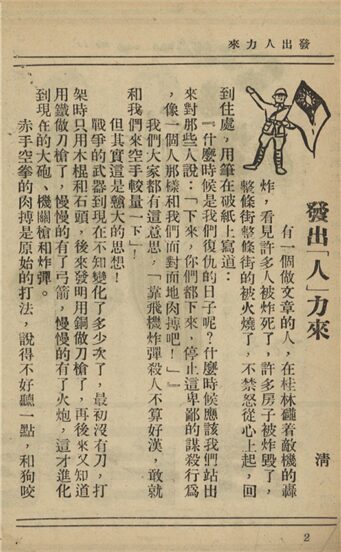 來力人出發
發出「人」力來
清
有一個做文章的人，在桂林碰着敵機的轟
炸，看見許多人被炸死了，許多房子被炸毀了，
整條街整條街的被火燒了，不禁怒從心上起，回
到住處，用筆在破紙上寫道：
『什麼時候是我們復仇的日子呢？什麼時候應該我們站出
來對那些人說：「下來，你們都下來，停止這卑鄙的謀殺行為
，像一個人那樣和我們面對面地肉搏吧！」』
我們大家都有這意思，「靠飛機炸彈殺人不算好漢，敢就
和我們來空手較量一下」！
但其實這是戇大的思想！
戰爭的武器到現在不知變化了多少次了，最初沒有刀，打
架時只用木棍和石頭，後來發明用銅做刀槍了，再後來又知道
用鐵做刀槍了，慢慢的有了弓箭，慢慢的有了火炮，這才進化
到現在的大砲、機關槍和炸彈。
赤手空拳的肉搏是原始的打法，說得不好聽一點，和狗咬
2